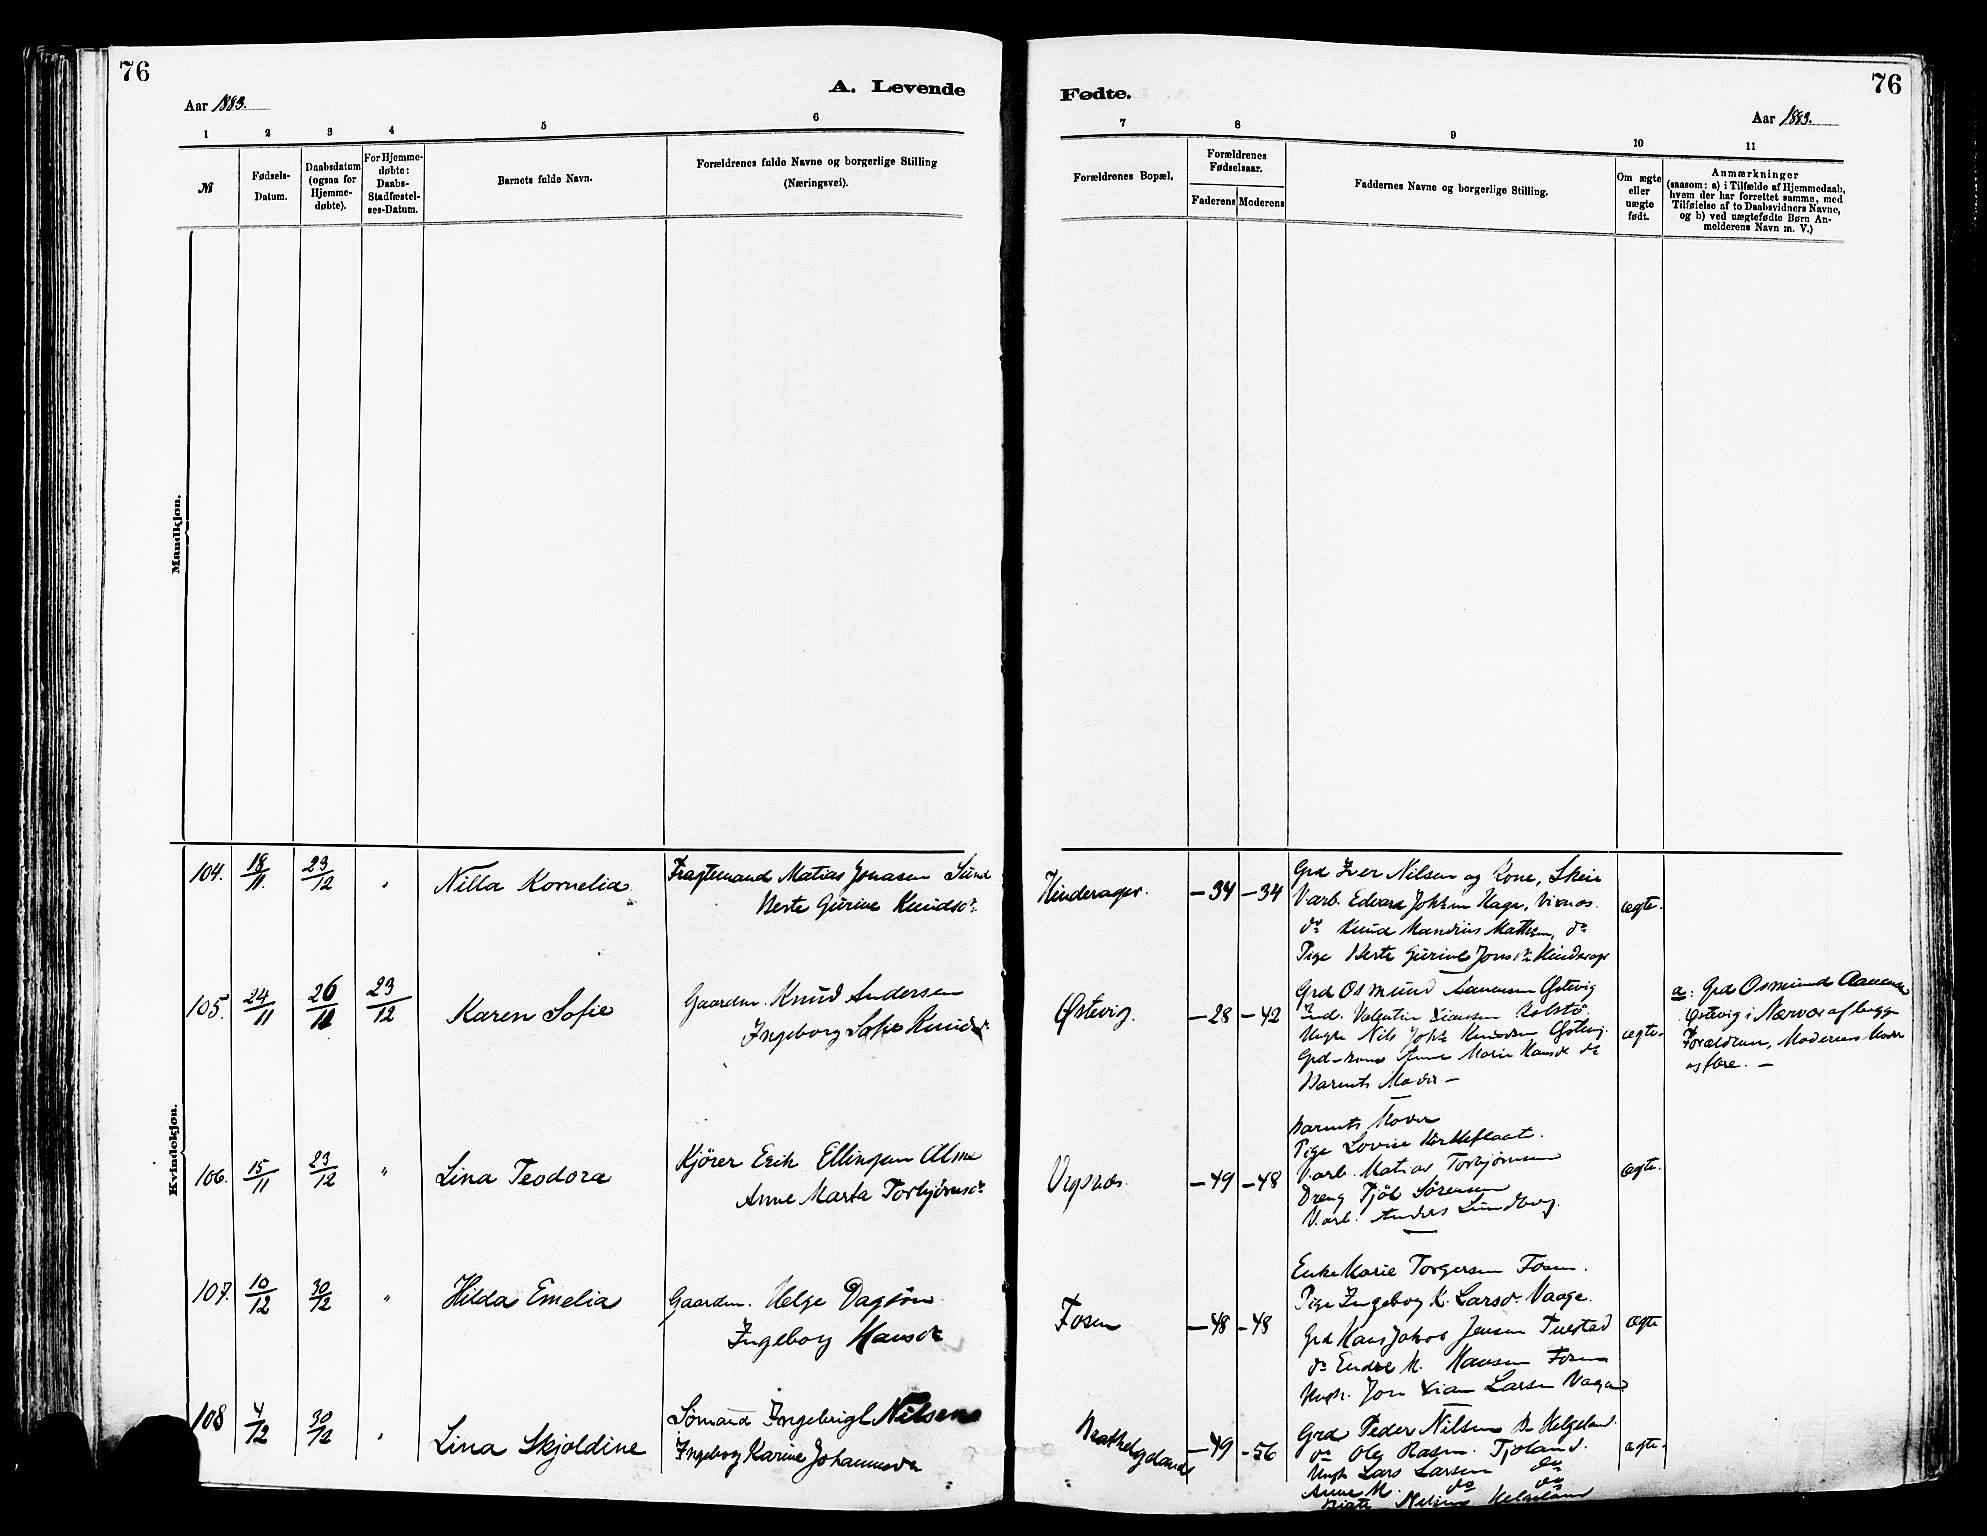 76
Aar 1883.
A. Levende
1 2 3 4 5 6
№
Fødsels-
Datum.
Daabsdatum
(ogsaa for
Hjemme-
døbte).
For Hjemme-
døbte:
Daabs-
Stadfæstel-
ses-Datum.
Barnets fulde Navn.
Forældrenes fulde Navne og borgerlige Stilling
(Næringsvei).
Mandkjøn.
Kvindekjøn.
104. 18/11. 23/12 " Nilla Kornelia.
Fragtemand Matias Jonasen Sund
Berte Gurine Knudsdr.
105. 24/11 26/11 23/12 Karen Sofie
Gaardm. Knud Andersen
Ingeborg Sofie Knudsdr
106. 15/11 23/12 " Lina Teodora
Kjører Erik Ellingsen Alne
Anne Marta Torbjørnsdr
107. 10/12 30/12 " Hilda Emelia
Gaardm. Helge Dagsøn
Ingeborg Hansdr
108 4/12 30/12 " Lina Skjoldine
Sømand Ingebrigt Nilsen
Ingeborg Karine Johannesdr
Fødte.
76
Aar 1883.
7 8 9 10 11
Forældrenes Bopæl,
Forældrenes
Fødselsaar.
Faderens Moderens
Faddernes Navne og borgerlige Stilling.
Om ægte
eller
uægte
født.
Anmærkninger
(saasom: a) i Tilfælde af Hjemmedaab,
hvem der har forrettet samme, med
Tilføielse af to Daabsvidners Navne,
og b) ved uægtefødte Børn An-
melderens Navn m. V.)
Hinderager. – 34 – 34 ægte.
Grd Iver Nilsen og Kone, Skeie
Varb. Edvard Hage, Visnæs.
do Knud Mandius do
Pige Berte Gurine Jonsdr Hinderager
Østevig. – 28 – 42 ægte.
Grd Osmund Aanensen Østevig
Valentin Kolstø.
Ungk Nils Joh. Knudsen Østevig.
Grd-kone Anne Marie Hansdr do
Barnets Moder –
a: Grd Osmund Aanensen
Østevig i Nærvær af begge
Forældrene, Moderens Moder
og flere. –
Vigsnæs. – 49 – 48 ægte.
Barnets Moder
Pige Lovise
Varb. Matias Torbjørnsen
Dreng Sørensen
Varb. Andreas Lundberg.
Fosen – 48 – 48 ægte
Enke Marie Torgersen Fosen.
Pige Ingeborg K. Larsd. Vaage.
Grd Hans Jakob Jensen Tuestad
do Endre M. Hansen Fosen
Ungk. Jon Larsen Vaage
– 49 – 56 ægte.
Grd Peder Nilsen N. Helgeland.
do Ole Rasm. Tjoland.
Ungk Lars Larsen do
Anne M. do do
Nilsen Helgeland